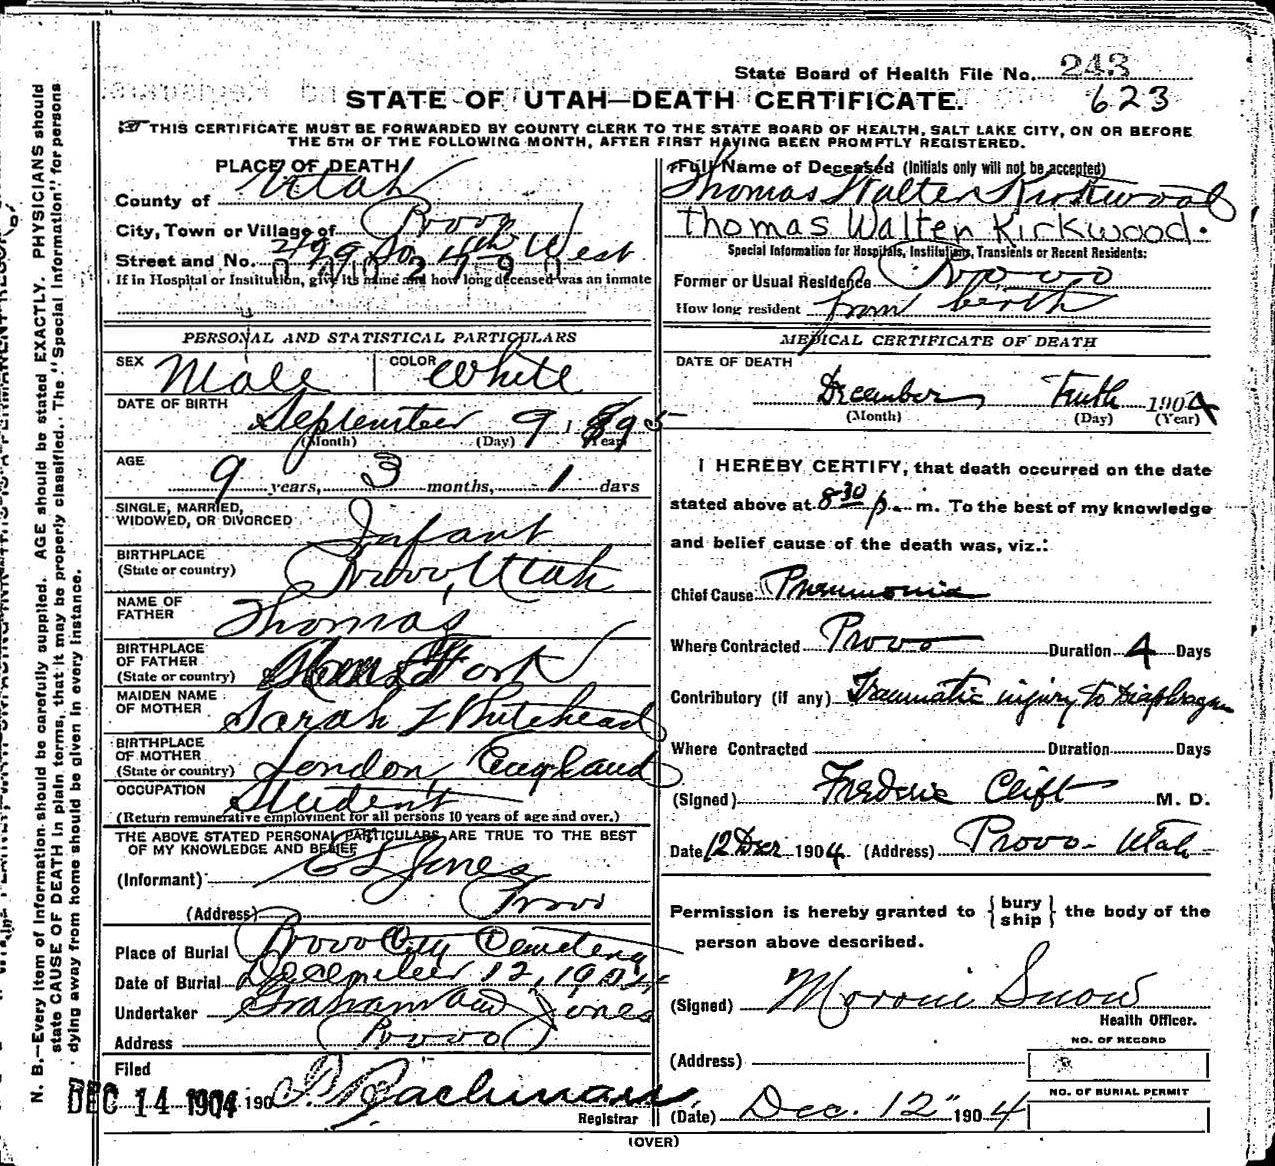 State Board of Health File No. 243
623
STATE OF UTAH—DEATH CERTIFICATE.
THIS CERTIFICATE MUST BE FORWARDED BY COUNTY CLERK TO THE STATE BOARD OF HEALTH, SALT LAKE CITY, ON OR BEFORE
THE 5TH OF THE FOLLOWING MONTH, AFTER FIRST HAVING BEEN PROMPTLY REGISTERED.
PLACE OF DEATH
County of Utah
City, Town or Village of Provo
Street and No. 499 So 4th West
If in Hospital or Institution, give its name and how long deceased was an inmate
PERSONAL AND STATISTICAL PARTICULARS
SEX Male COLOR White
DATE OF BIRTH
September 9 1895
(Month) (Day) (Year)
AGE
9 years, 3 months, 1 days
SINGLE, MARRIED,
WIDOWED, OR DIVORCED Infant
BIRTHPLACE
(State or country) Provo, Utah
NAME OF
FATHER Thomas
BIRTHPLACE
OF FATHER
(State or country) Fork
MAIDEN NAME
OF MOTHER Sarah Whitehead
BIRTHPLACE
OF MOTHER
(State or country) London, England
OCCUPATION Student
(Return remunerative employment for all persons 10 years of age and over.)
THE ABOVE STATED PERSONAL PARTICULARS ARE TRUE TO THE BEST
OF MY KNOWLEDGE AND BELIEF
(Informant) Jones
(Address) Provo
Place of Burial Provo City Cemetery
Date of Burial December 12, 1904
Undertaker Graham and Jones
Address Provo
Filed
DEC 14 1904 190
Registrar
Full Name of Deceased (Initials only will not be accepted)
Thomas Walter Kirkwood
Thomas Walten Kirkwood.
Special Information for Hospitals, Institutions, Transients or Recent Residents:
Former or Usual Residence Provo
How long resident from berth
MEDICAL CERTIFICATE OF DEATH
DATE OF DEATH
December Tenth 1904
(Month) (Day) (Year)
I HEREBY CERTIFY, that death occurred on the date
stated above at 8 30 p. m. To the best of my knowledge
and belief cause of the death was, viz.:
Chief Cause Pneumonia
Where Contracted Provo Duration 4 Days
Contributory (if any) Traumatic injury to Diaphragm
Where Contracted Duration Days
(Signed) Frederic Clift M. D.
Date 12 Decr 1904. (Address) Provo - Utah -
Permission is hereby granted to {bury ship} the body of the
person above described.
(Signed) Moroni Snow
Health Officer.
(Address) NO. OF RECORD
NO. OF BURIAL PERMIT
(Date) Dec. 12" 1904
(OVER)
N. B.—Every item of information should be carefully supplied. AGE should be stated EXACTLY. PHYSICIANS should
state CAUSE OF DEATH in plain terms, that it may be properly classified. The "Special Information" for persons
dying away from home should be given in every instance.